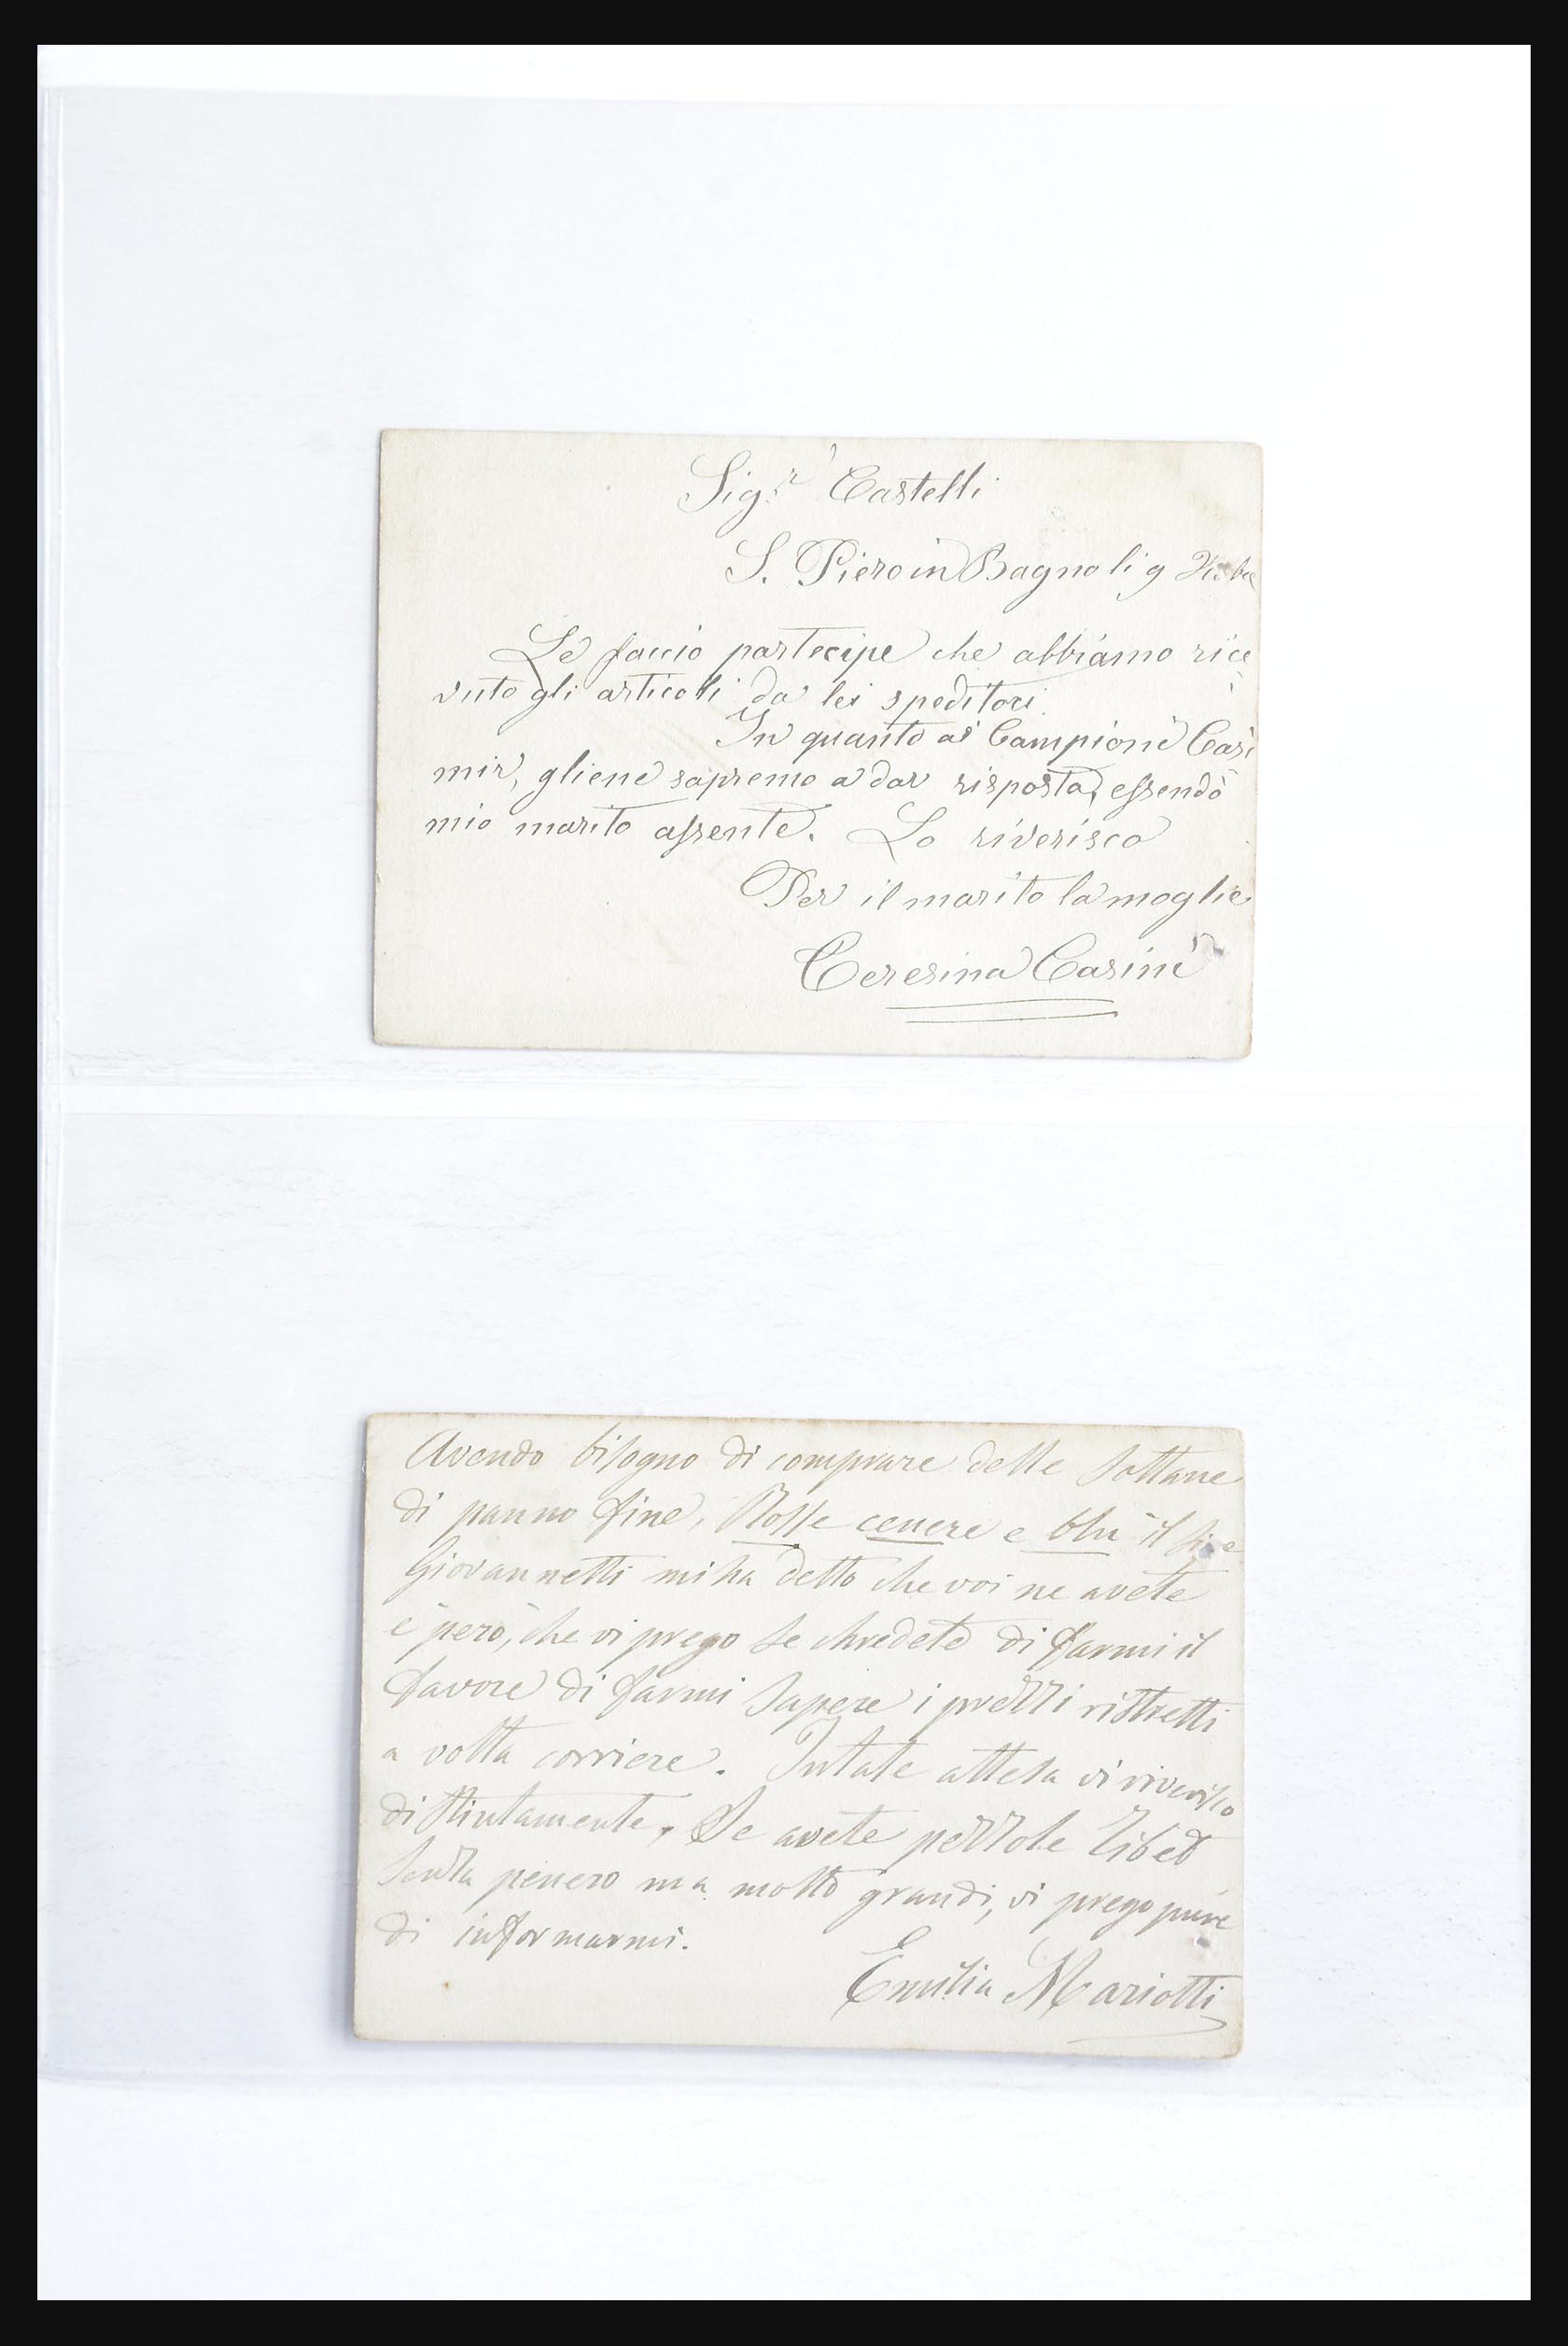 Sig.r Castelli
S. Piero in Bagno li 9
Le faccio partecipe che abbiamo rice
vuto gli articoli da lei speditoci.
In quanto ai Campioni Casi
mir, gliene sapremo a dar risposta, essendo
mio marito assente. Lo riverisco
Per il marito la moglie
Teresina Casini
Avendo bisogno di comprare delle sottane
di panno fine, Rosse cenere e blu il
Giovannetti mi ha detto che voi ne avete
e però, che vi prego se chredete di farmi il
favore di farmi sapere i prezzi ristretti
a volta corriere. In tale attesa vi riverisco
distintamente. Se avete pezzole Tibet
senza penero ma molto grandi, vi prego pure
di informarmi.
Emilia Mariotti